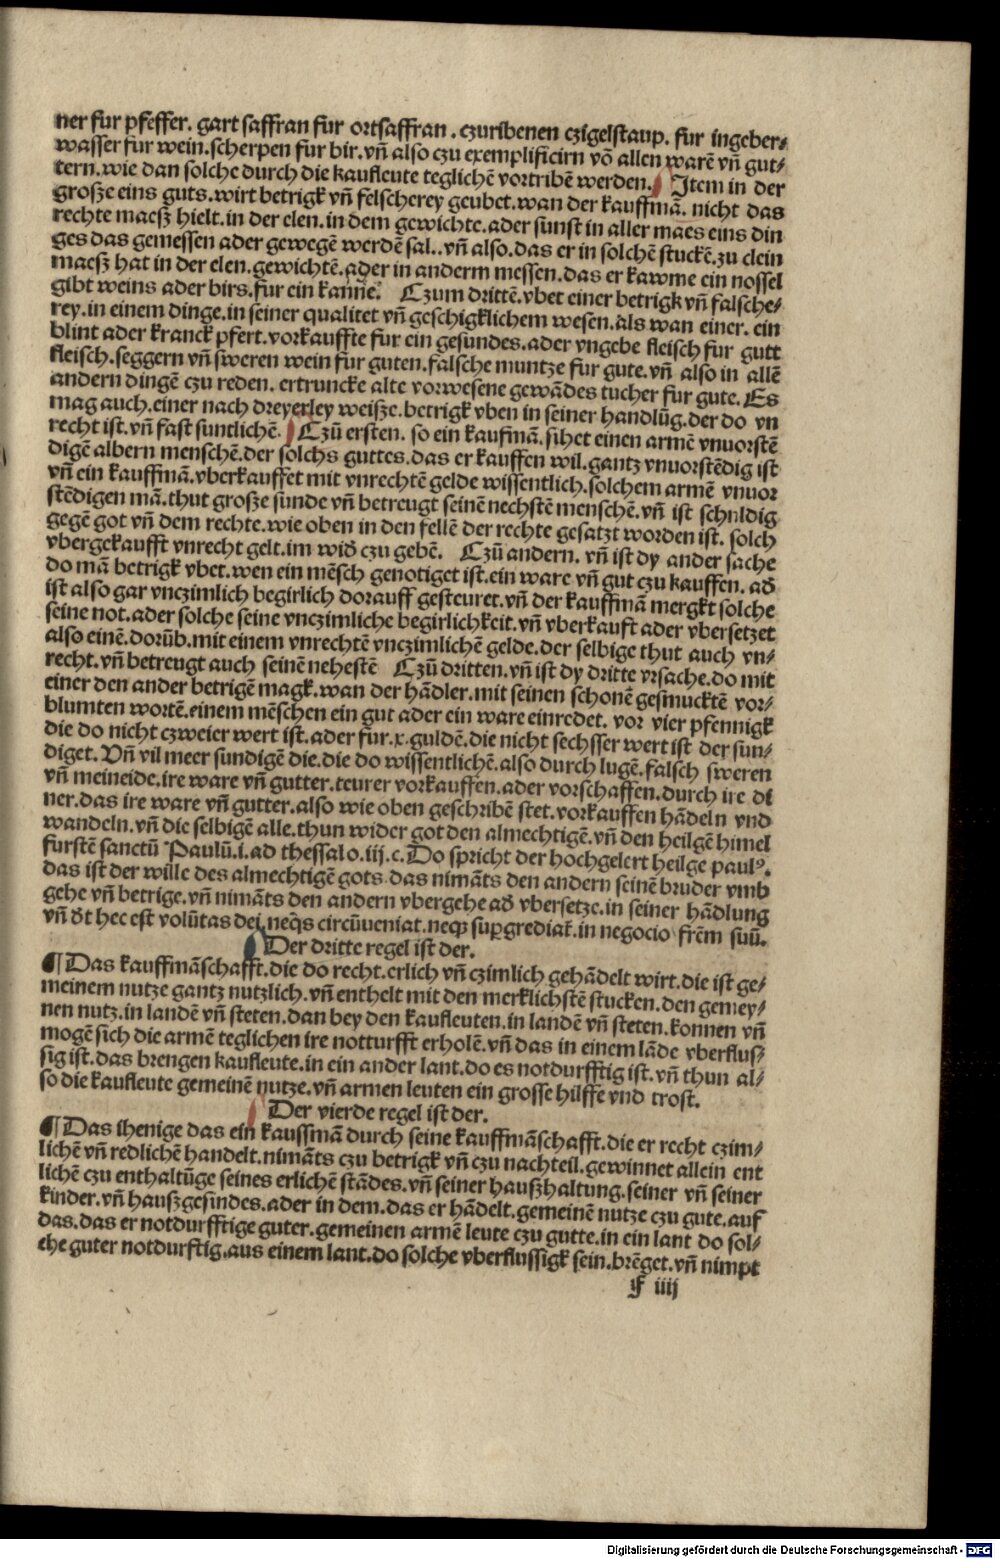 ner fur pfeffer. gart saffran fur ortsaffran. czuribenen czigelstaup. fur ingeber⸗
wasser fur wein. scherpen fur bir. vñ also czu exemplificirn võ allen warẽ vñ gut⸗
tern. wie dan solche durch die kaufleute teglichẽ vortribẽ werden. Item in der
große eins guts. wirt betrigk vñ felscherey geubet. wan der kauffmã. nicht das
rechte maesz hielt. in der elen. in dem gewichte. ader sunst in aller maes eins din
ges das gemessen ader gewegẽ werdẽ sal.. vñ also. das er in solchẽ stuckẽ. zu clein
maesz hat in der elen. gewichtẽ. ader in anderm messen. das er kawme ein nossel
gibt weins ader birs. fur ein kañe. Czum drittẽ. vbet einer betrigk vñ falsche⸗
rey. in einem dinge. in seiner qualitet vñ geschigklichem wesen. als wan einer. ein
blint ader kranck pfert. vorkauffte fur ein gesundes. ader vngebe fleisch fur gutt
fleisch. seggern vñ sweren wein fur guten. falsche muntze fur gute. vñ also in allẽ
andern dingẽ czu reden. ertruncke alte vorwesene gewãdes tucher fur gute. Es
mag auch. einer nach dreyerley weiße. betrigk vben in seiner handlũg. der do vn
recht ist. vñ fast suntlichẽ. Czũ ersten. so ein kaufmã. sihet einen armẽ vnuorstẽ
digẽ albern menschẽ. der solchs guttes. das er kauffen wil. gantz vnuorstẽdig ist
vñ ein kauffmã. vberkauffet mit vnrechtẽ gelde wissentlich. solchem armẽ vnuor
stẽdigen mã. thut große sunde vñ betreugt seinẽ nechstẽ menschẽ. vñ ist schuldig
gegẽ got vñ dem rechte. wie oben in den fellẽ der rechte gesatzt worden ist. solch
vbergekaufft vnrecht gelt. im wid̃ czu gebẽ. Czũ andern. vñ ist dy ander sache
do mã betrigk vbet. wen ein mẽsch genotiget ist. ein ware vñ gut czu kauffen. ad̃
ist also gar vnczimlich begirlich dorauff gesteuret. vñ der kauffmã mergkt solche
seine not. ader solche seine vnczimliche begirlichkeit. vñ vberkauft ader vbersetzet
also einẽ. dorũb. mit einem vnrechtẽ vnczimlichẽ gelde. der selbige thut auch vn⸗
recht. vñ betreugt auch seinẽ nehestẽ Czũ dritten. vñ ist dy dritte vrsache. do mit
einer den ander betrigẽ magk. wan der hãdler. mit seinen schonẽ gesmucktẽ vor⸗
blumten wortẽ. einem mẽschen ein gut ader ein ware einredet. vor vier pfennigk
die do nicht czweier wert ist. ader fur. x. guldẽ. die nicht sechsser wert ist der sun⸗
diget. Vñ vil meer sundigẽ die. die do wissentlichẽ. also durch lugẽ. falsch sweren
vñ meineide. ire ware vñ gutter. teurer vorkauffen. ader vorschaffen. durch ire di
ner. das ire ware vñ gutter. also wie oben geschribẽ stet. vorkauffen hãdeln vnd
wandeln. vñ die selbigẽ alle. thun wider got den almechtigẽ. vñ den heilgẽ himel
furstẽ sanctũ Paulũ. i. ad thessalo. iij. c. Do spricht der hochgelert heilge paulꝰ.
das ist der wille des almechtigẽ gots. das nimãts den andern seinẽ bruder vmb
gehe vñ betrige. vñ nimãts den andern vbergehe ad̃ vbersetze. in seiner hãdlung
vñ d̃t hec est volũtas dei. neq̃s circũueniat. neqꝫ suꝑgrediat̃. in negocio frẽm suũ.
Der dritte regel ist der.
¶ Das kauffmãschafft. die do recht. erlich vñ czimlich gehãdelt wirt. die ist ge⸗
meinem nutze gantz nutzlich. vñ enthelt mit den merklichstẽ stucken. den gemey⸗
nen nutz. in landẽ vñ steten. dan bey den kaufleuten. in landẽ vñ steten. konnen vñ
mogẽ sich die armẽ teglichen ire notturfft erholẽ. vñ das in einem lãde vberflus⸗
sig ist. das brengen kaufleute. in ein ander lant. do es notdurfftig ist. vñ thun al⸗
so die kaufleute gemeinẽ nutze. vñ armen leuten ein grosse hilffe vnd trost.
Der vierde regel ist der.
¶ Das ihenige das ein kaussmã durch seine kauffmãschafft. die er recht czim⸗
lichẽ vñ redlichẽ handelt. nimãts czu betrigk vñ czu nachteil. gewinnet allein ent
lichẽ czu enthaltũge seines erlichẽ stãdes. vñ seiner haußhaltung. seiner vñ seiner
kinder. vñ haußgesindes. ader in dem. das er hãdelt. gemeinẽ nutze czu gute. auf
das. das er notdurfftige guter. gemeinen armẽ leute czu gutte. in ein lant do sol⸗
che guter notdurftig. aus einem lant. do solche vberflussigk sein. brẽget. vñ nimpt
f iiij
Digitalisierung gefördert durch die Deutsche Forschungsgemeinschaft - DFG